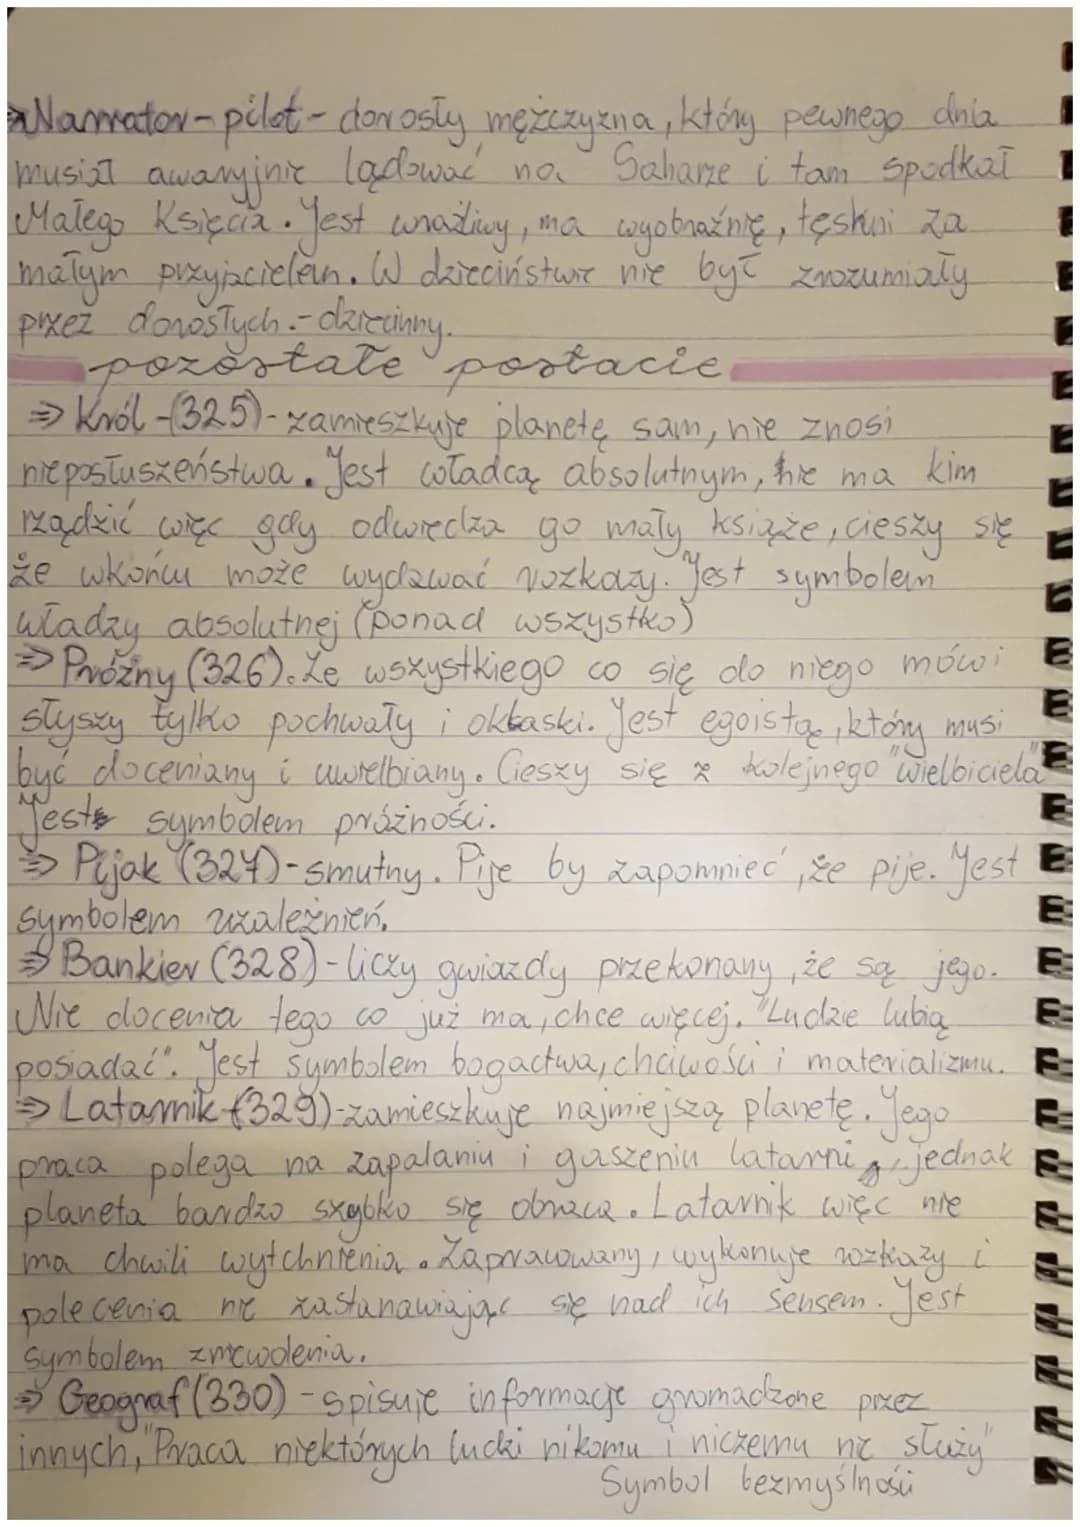 ⇒Narrator-pilot-dorosły mężczyzna, który pewnego dnia
musiał awaryjnie lądować na Saharze i tam spodkał
Małego Księcia. Jest wrażliwy, ma wyobraźnię, tęskni za
małym przyjacielem. W dzieciństwie nie był zrozumiały
przez dorosłych.-dziecinny.
pozostałe postacie
⇒ Król -(325)-zamieszkuje planetę sam, nie znosi
nieposłuszeństwa. Jest władcą absolutnym, nie ma kim
rządzić więc gdy odwiedza go mały książe, cieszy się
że wkońcu może wydawać rozkazy. Jest symbolem
władzy absolutnej (ponad wszystko)
⇒ Próżny (326). Ze wszystkiego co się do niego mówi
słyszy tylko pochwały i oklaski. Jest egoistą, który musi
być doceniany i uwielbiany. Cieszy się z kolejnego "wielbiciela"
Jest symbolem próżności.
⇒ Pijak (327)-smutny. Pije by zapomnieć, że pije. Jest
symbolem uzależnień.
⇒ Bankier (328)-liczy gwiazdy przekonany, że są jego.
Nie docenia tego co już ma, chce więcej. "Ludzie lubią
posiadać". Jest symbolem bogactwa, chciwości i materializmu.
⇒ Latarnik-(329)-zamieszkuje najmiejszą planetę. Jego
praca polega na zapalaniu i gaszeniu latarni, jednak
planeta bardzo szybko się obraca. Latarnik więc nie
ma chwili wytchnienia. Zapracowany, wykonuje rozkazy i
polecenia nie zastanawiając się nad ich sensem. Jest
symbolem zniewolenia.
⇒ Geograf (330) -spisuje informacje gromadzone przez
innych, "Praca niektórych ludzi nikomu i niczemu nie służy"
Symbol bezmyślności